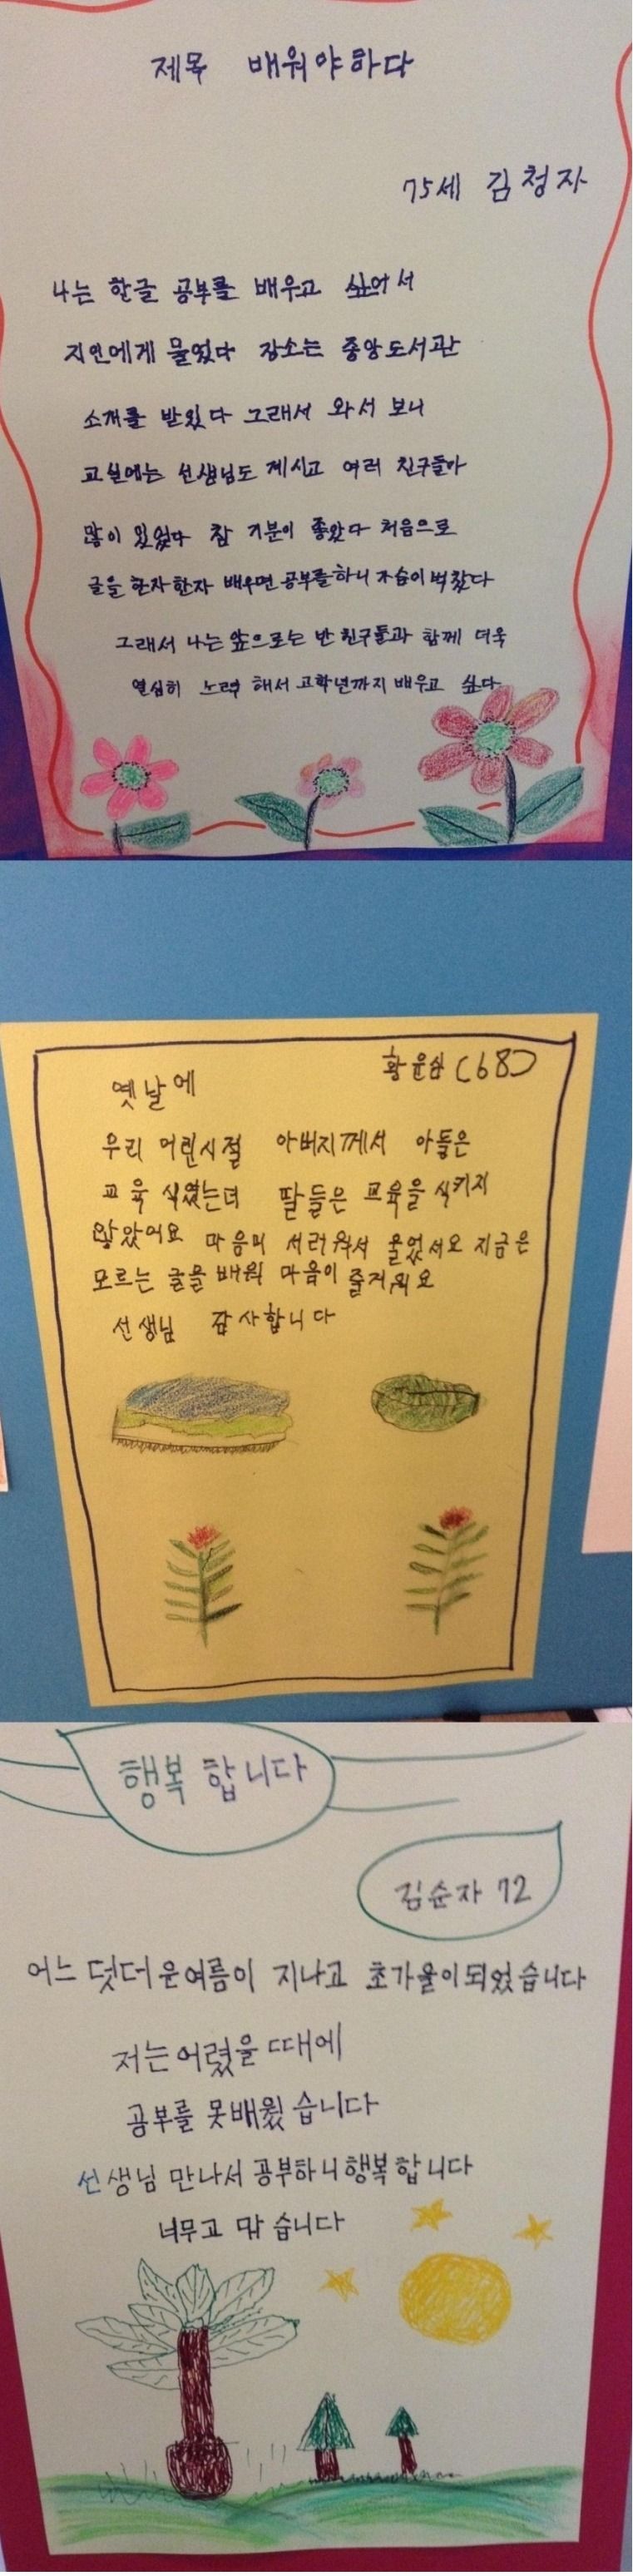 제목 배워야하다
75세 김청자
나는 한글 공부를 배우고 싶어서
지인에게 물었다 장소는 중앙도서관
소개를 받았다 그래서 와서 보니
교실에는 선생님도 계시고 여러 친구들이
많이 있었다 참 기분이 좋았다 처음으로
글을 한자한자 배우면 공부를하니 가슴이벅찼다
그래서 나는 앞으로는 반 친구들과 함께 더욱
열심히 노력 해서 고학년까지 배우고 싶다
황윤삼(68)
옛날에
우리 어린시절 아버지께서 아들은
교육 식혔는데 딸들은 교육을 식키지
않았어요 마음이 서러워서 울었서요 지금은
모르는 글을 배워 마음이 즐거워요
선생님 감사합니다
행복 합니다
김순자 72
어느 덧더운여름이 지나고 초가울이되었습니다
저는어렸을때에
공부를 못배웠습니다
선생님 만나서 공부하니행복합니다
너무고 맙습니다